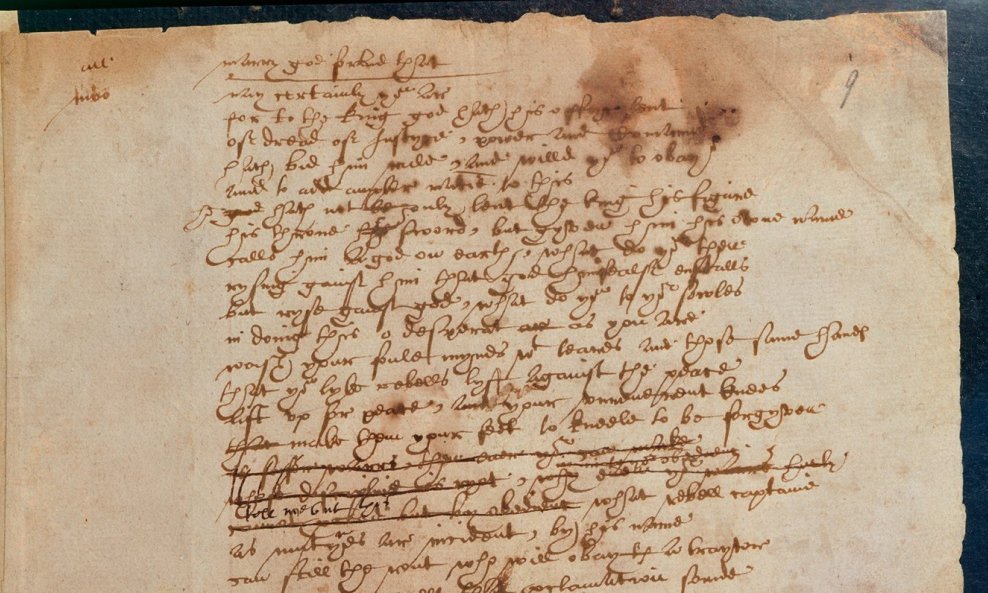 all marry god forbid that
moo nay certainly you ar
for to the king god hath his offyc lent
of dread of Iustyce, power and Comaund
hath bid him rule, and willd you to obay
and to add ampler matie to this
he god hath not only lent the king his figure
his throne his sword, but gyven him his owne name
calls him a god on earth, what do you then
rysing gainst him that god himsealf enstalls
but ryse gainst god, what do you to yor sowles
in doing this o desperat ar as you are
wash your foule mynds wt teares and those same handes
that you lyke rebells lyft against the peace
lift vp for peace, and your vnreuerent knees
that make them your feet to kneele to be forgyven
is safer warrs, then euer you can make
whose discipline is ryot, why euen yor warrs hurly
tell me but this
cannot proceed but by obedienc what rebell captaine
as mutynes ar incident, by his name
can still the rout who will obay th a traytor
well that proclamation sounde